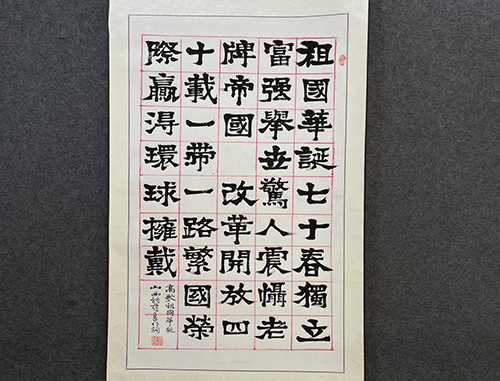 祖國華誕七十春獨立
富强舉世驚人震懾老
牌帝國 改革開放四
十載一帶一路繁國榮
際贏得環球擁戴
高歌祖國華誕
山西